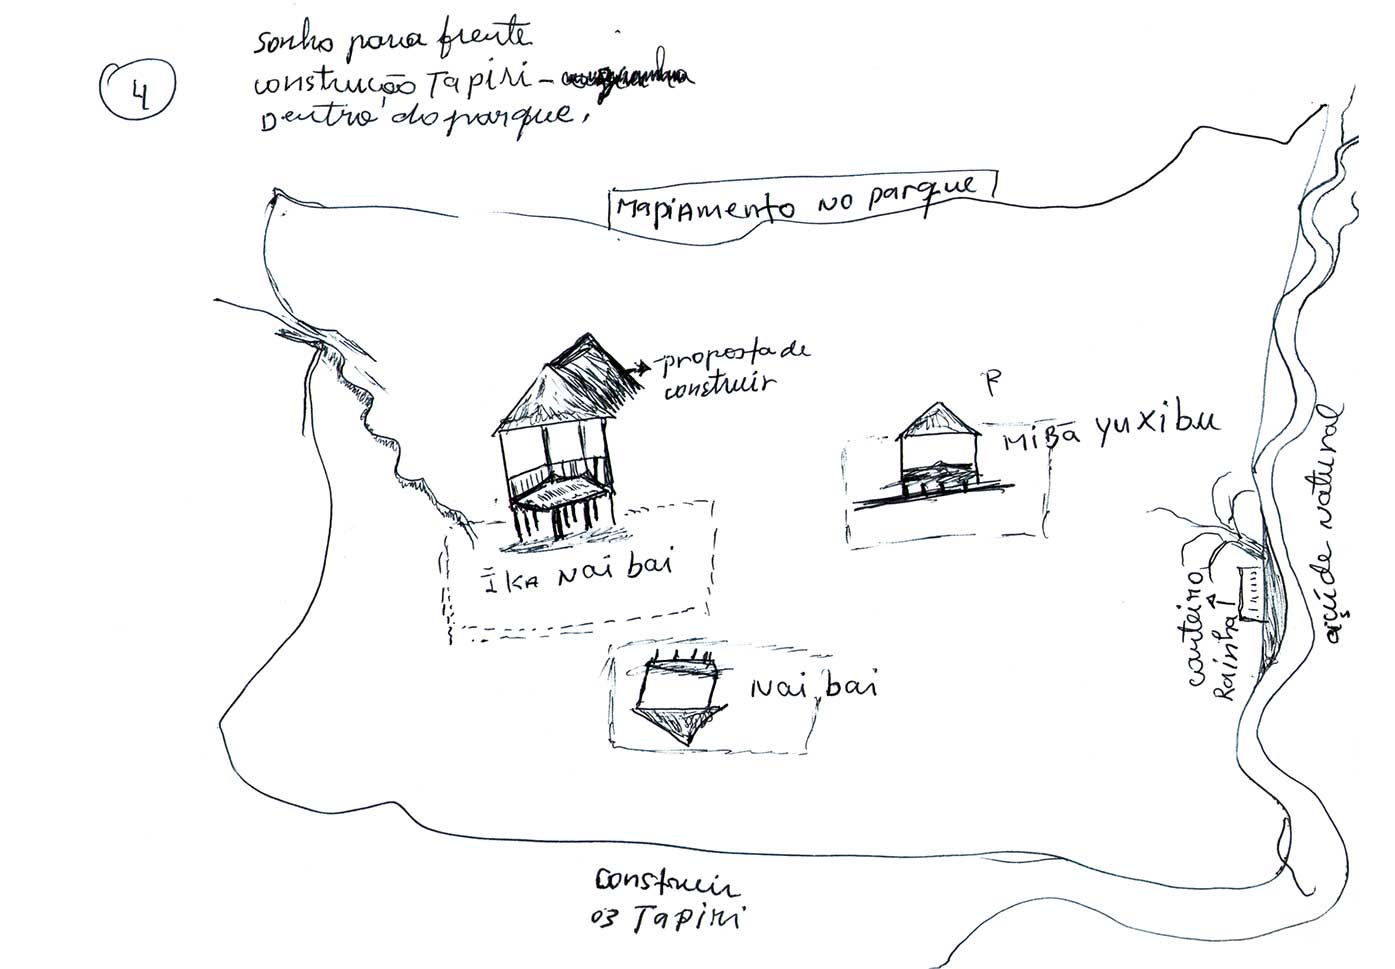 4
sonho para frente
construção Tapiri -
Dentro do parque.
Mapiamento no parque
proposta de
construir
R
MIBÃ YUXIBU
ĨKA NAI bai
NAI bai
canteiro
Rainha
açúde natural
construir
03 Tapiri